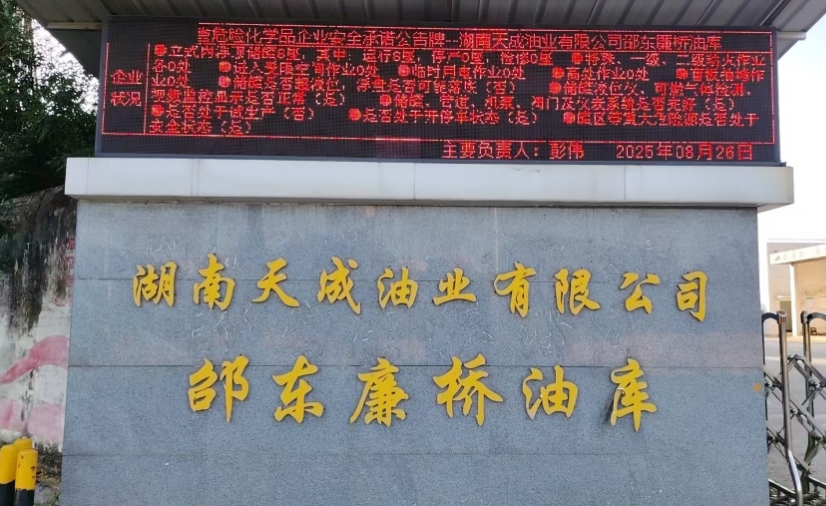 危险化学品企业安全承诺公告牌--湖南天成油业有限公司邵东廉桥油库
企业状况
●立式内浮顶储罐6座，其中，运行6座，停产0座，检修0座 ●特殊、一级、二级动火作业
各0处 ●进入受限空间作业0处 ●临时用电作业0处 ●高处作业0处 ●盲板抽堵作
业0处 ●储罐是否超液位，浮盘是否可能落底（否） ●储罐液位仪、可燃气体检测、
视频监控显示是否正常（是） ●储罐、管道、机泵、阀门及仪表系统是否完好（是）
●是否处于试生产（否） ●是否处于开停车状态（是） ●罐区等重大危险源是否处于
安全状态（是）
主要负责人：彭伟 2025年08月26日
湖南天成油业有限公司
邵东廉桥油库